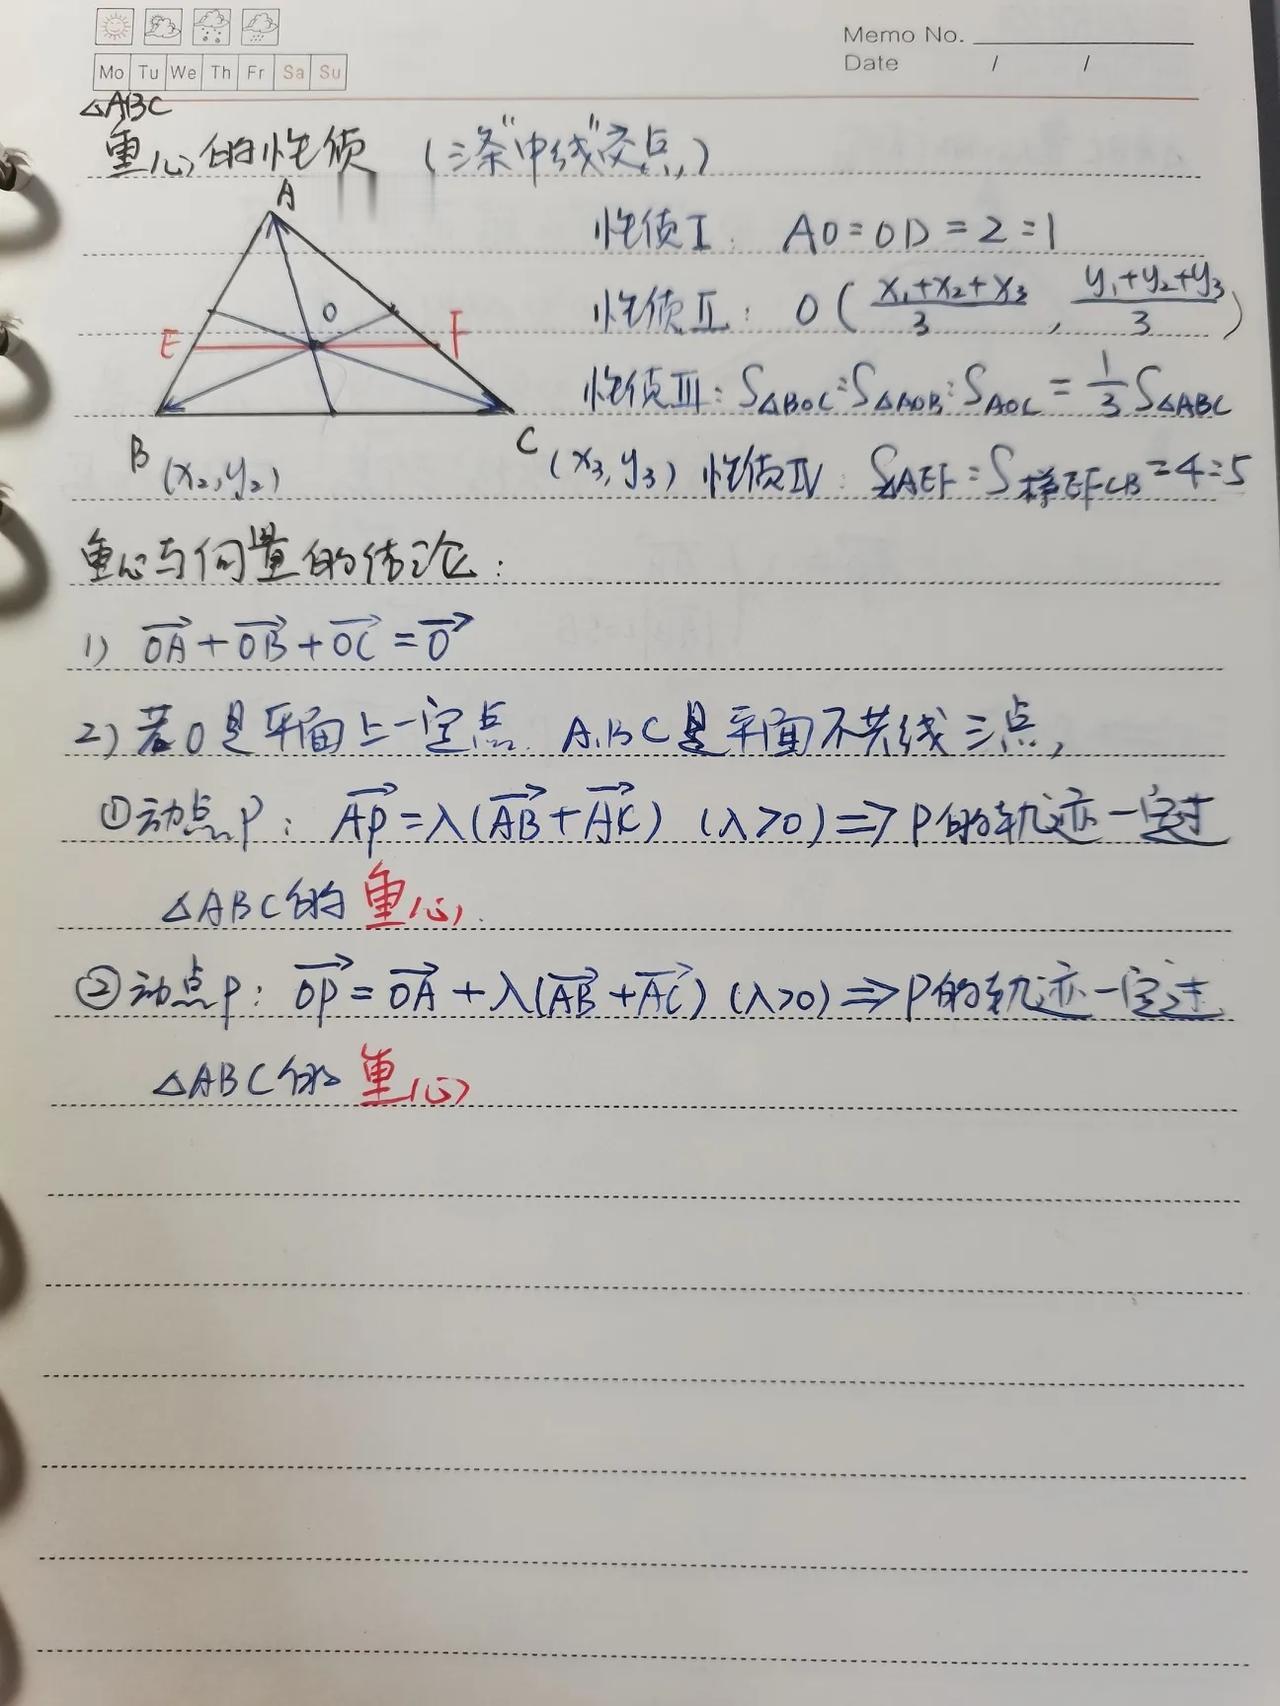 Memo No.
Mo Tu We Th Fr Sa Su
Date / /
△ABC
重心的性质 (三条"中线"交点)
A
性质Ⅰ: AO:OD=2:1
O
性质Ⅱ: O(\frac{x₁+x₂+x₃}{3}, \frac{y₁+y₂+y₃}{3})
E F
性质Ⅲ: S△BOC:S△AOB:SAOC=\frac{1}{3}S△ABC
B (x₂,y₂) C (x₃,y₃) 性质Ⅳ: S△AEF:S梯EFCB=4:5
重心与向量的结论:
1) \overrightarrow{OA}+\overrightarrow{OB}+\overrightarrow{OC}=\overrightarrow{0}
2) 若O是平面上一定点. A.B C是平面不共线三点,
①动点P: \overrightarrow{AP}=λ(\overrightarrow{AB}+\overrightarrow{AC}) (λ>0)⇒P的轨迹一定过
△ABC的重心.
②动点P: \overrightarrow{OP}=\overrightarrow{OA}+λ(\overrightarrow{AB}+\overrightarrow{AC}) (λ>0)⇒P的轨迹一定过
△ABC的重心